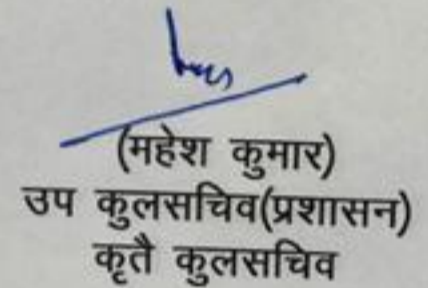 (महेश कुमार)
उप कुलसचिव(प्रशासन)
कृतै कुलसचिव